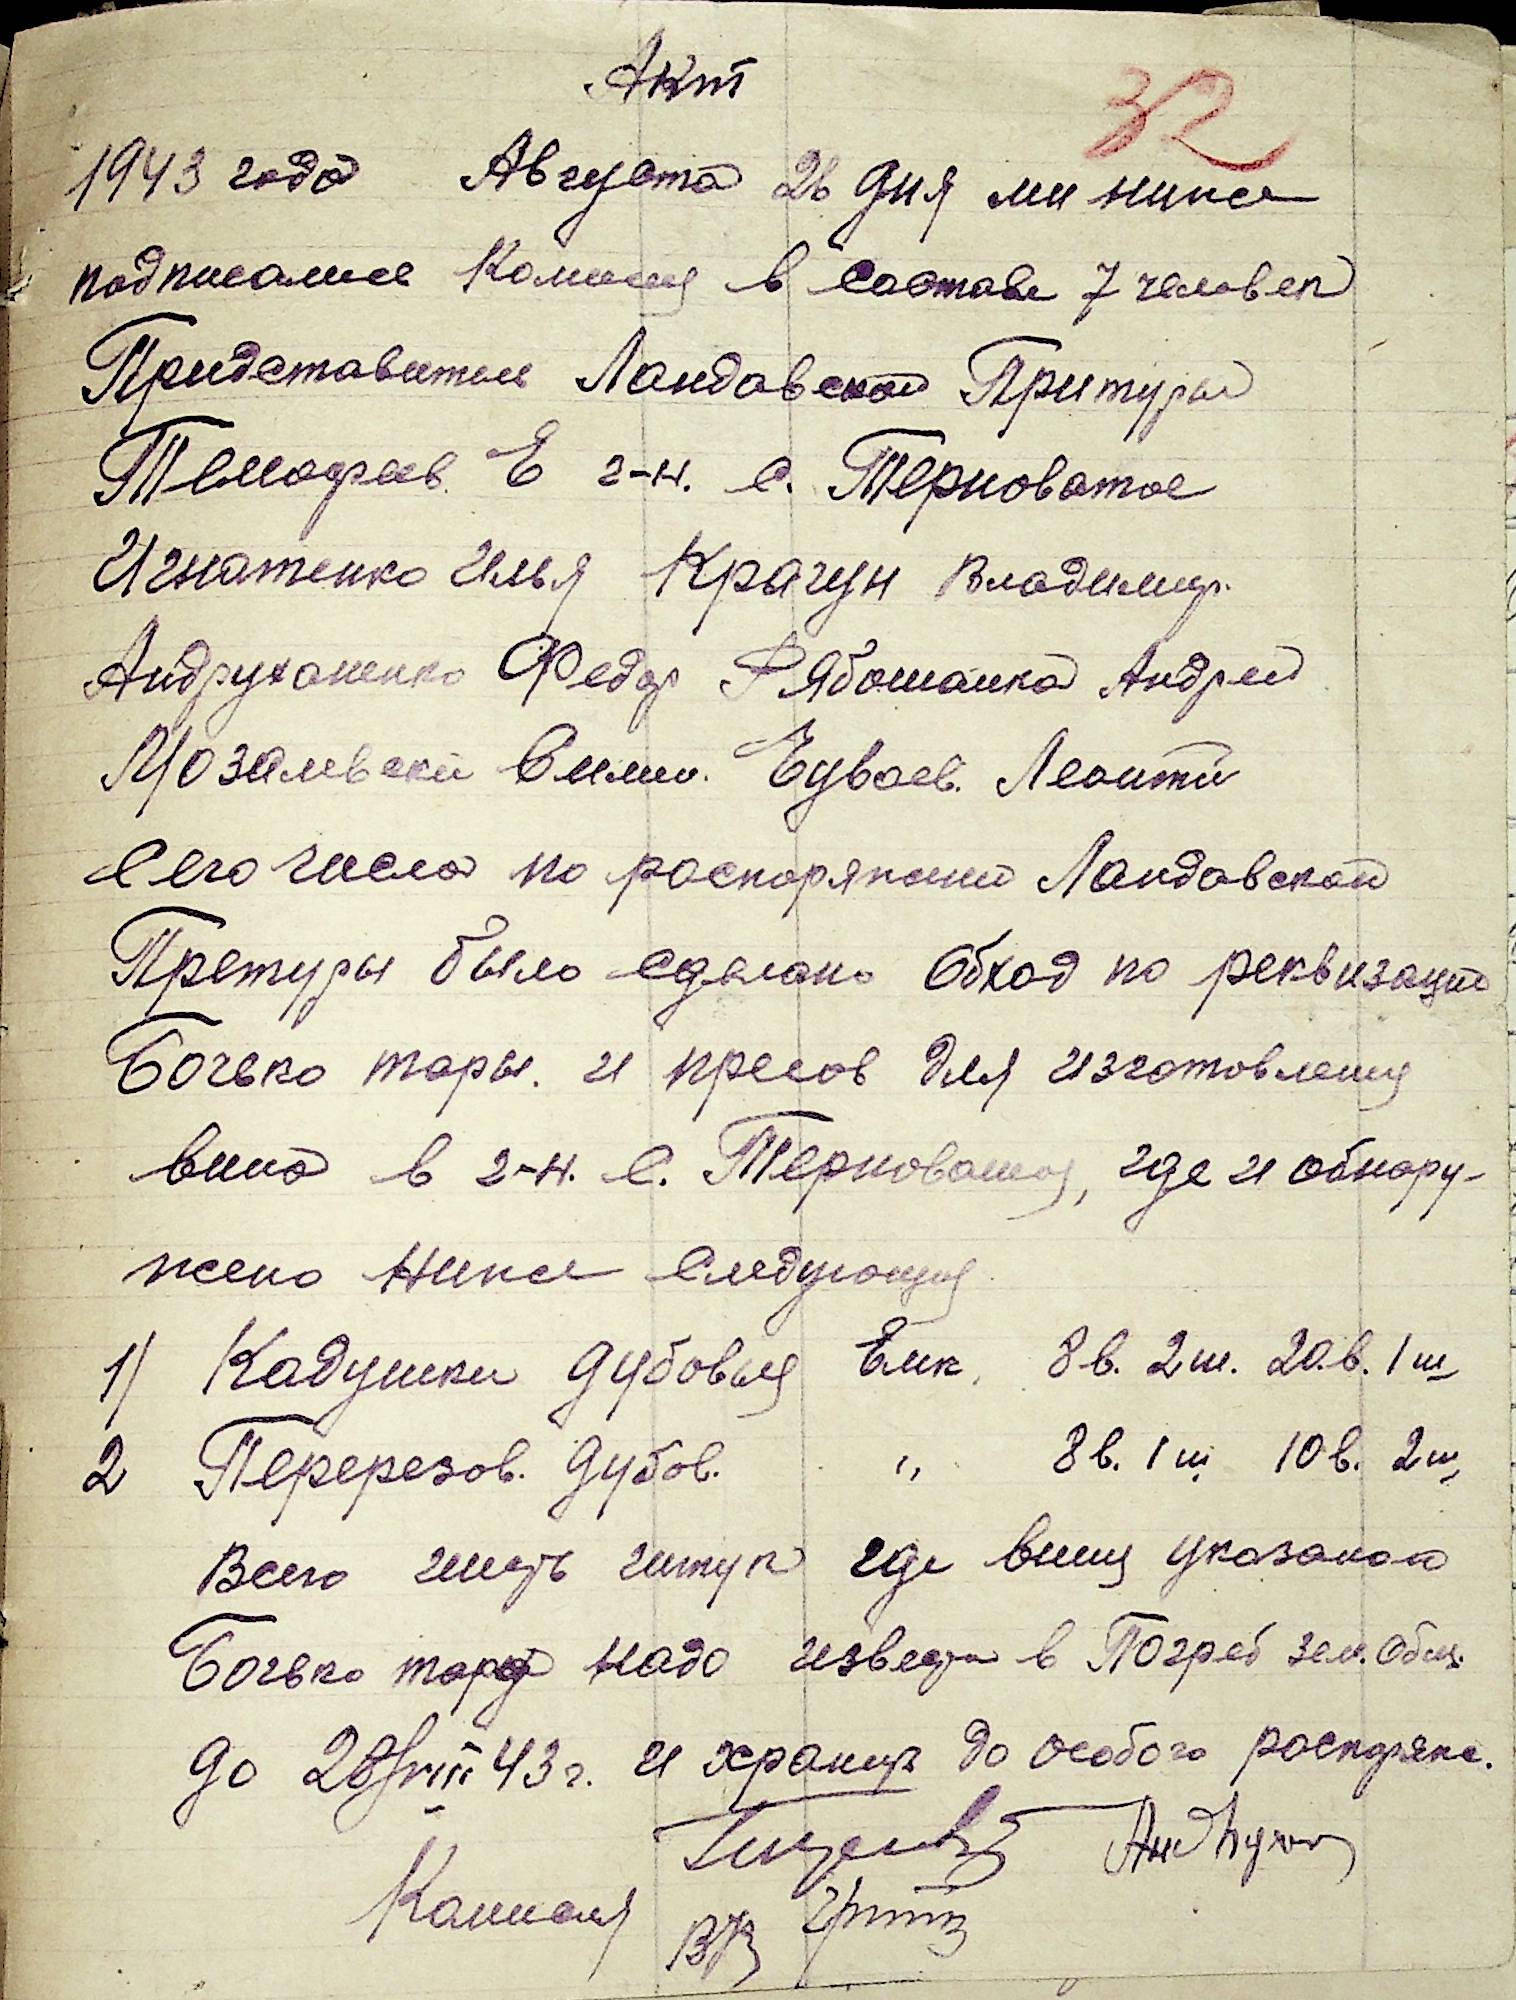 Акт
32
1943 года Августа 26 дня ми ниже
подписалися Комисия в составе 7 человек
Придставитель Ландавской Притуры
Темофеев. Е г-н. с. Терноватое
Игнатенко Илья Крачун Владимир.
Андруханенко Федор Рябошапка Андрей
Мозалевски Симио. Буваев. Леонти
Сего числа по распоряжении Ландавской
Претуры было сделано Обход по реквизации
Бочько тары. и пресов для изготовления
вина в г-н. с. Терноватоя, где и обнару-
жено ниже следующия
1) Кадушки дубовыя Емк. 8 в. 2 ш. 20.в. 1 ш
2 Перерезов. дубов. " 8 в. 1 ш 10 в. 2 ш,
Всего шесть штук где выш указаною
Бочько тара надо извести в Погреб зем. Общ.
до 28/VIII 43 г. и хранить до особого распоряже.
Андрухан
Комисия